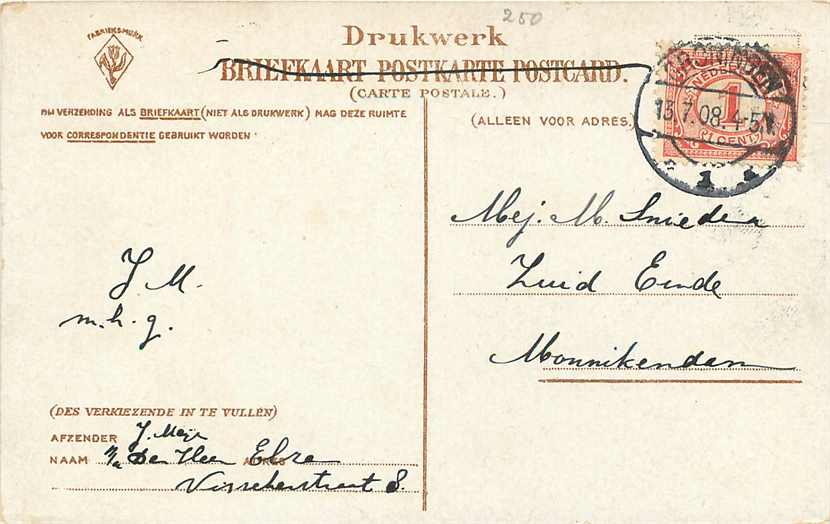 250
FABRIEKSMERK
Drukwerk
BRIEFKAART POSTKARTE POSTCARD.
(CARTE POSTALE.)
BIJ VERZENDING ALS BRIEFKAART (NIET ALS DRUKWERK) MAG DEZE RUIMTE
VOOR CORRESPONDENTIE GEBRUIKT WORDEN
(ALLEEN VOOR ADRES)
GRONINGEN
13.7.08 4-5N
1
1
CENT
Mej. M. Snieder
Zuid Einde
Monnikendam
J M.
m.h.g.
(DES VERKIEZENDE IN TE VULLEN)
AFZENDER J. Meijr
NAAM p/a Den Heer ADRES
Visscherstraat 8.